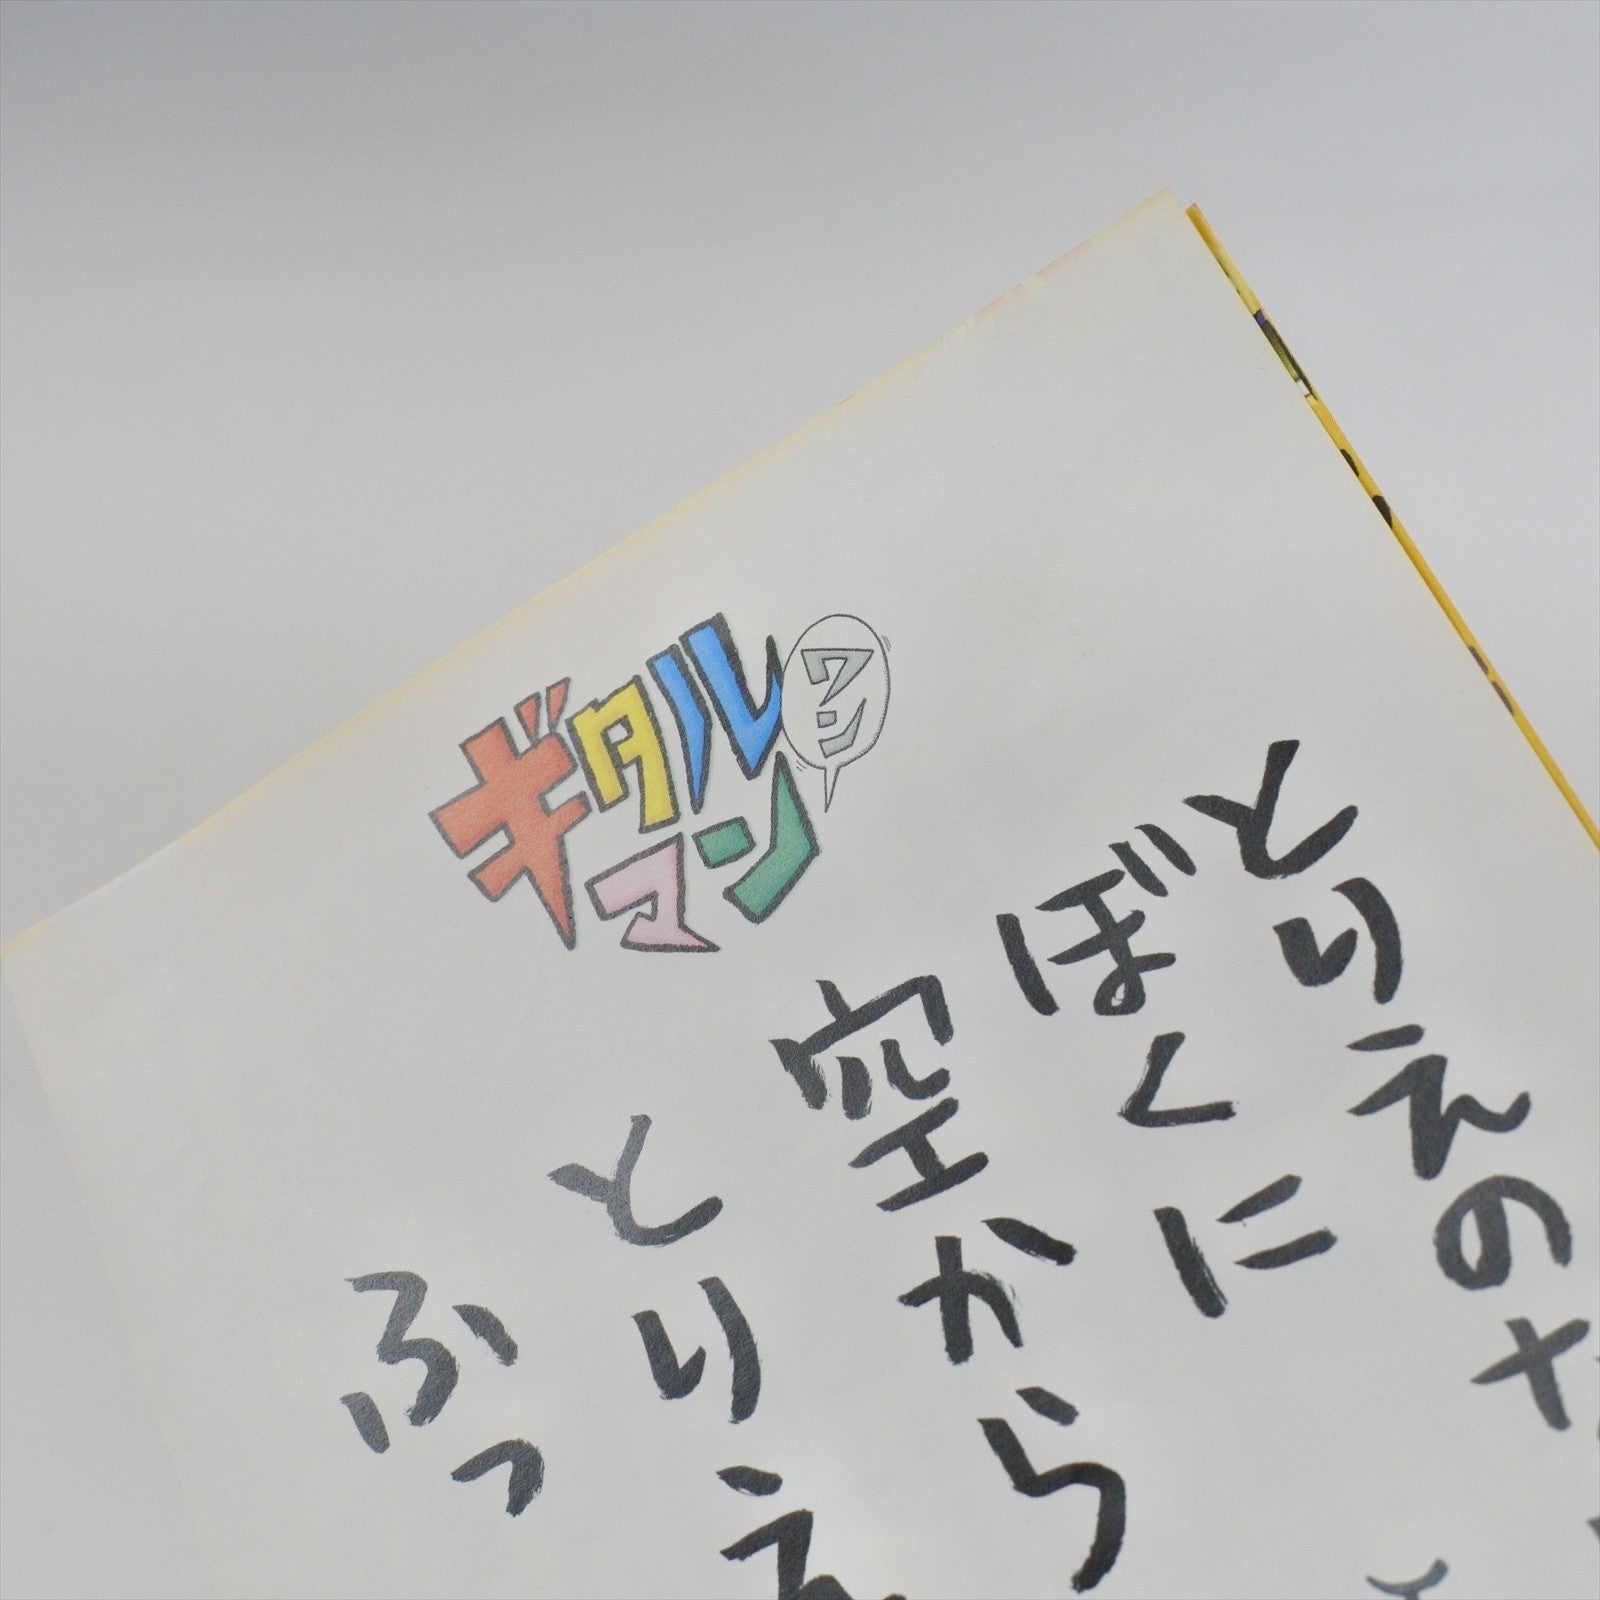 ギタルマン
ワン
とりえの
ぼくに
空から
とりえ
ふっ